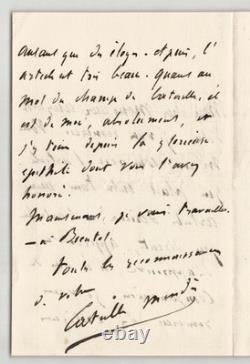 autant que du éloge. et puis, l'
article est très beau. Quant au
mot du champ de bataille, il
est de moi, absolument, et
j'y tiens depuis la glorieuse
épithète dont vous l'avez
honoré.
Maintenant, je vais travailler.
— à Bientôt
Toute la reconnaissance
de votre
Catulle Mendès
© thurb